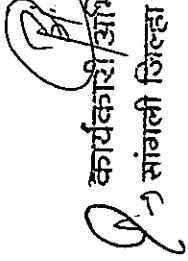 कार्यकारी अभि
सांगली जिल्हा